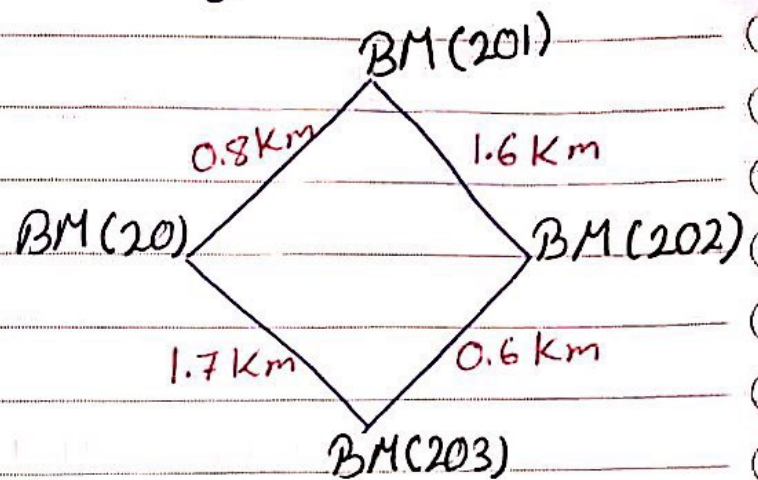 BM(201)
0.8 Km
1.6 Km
BM(20)
BM(202)
1.7 Km
0.6 Km
BM(203)